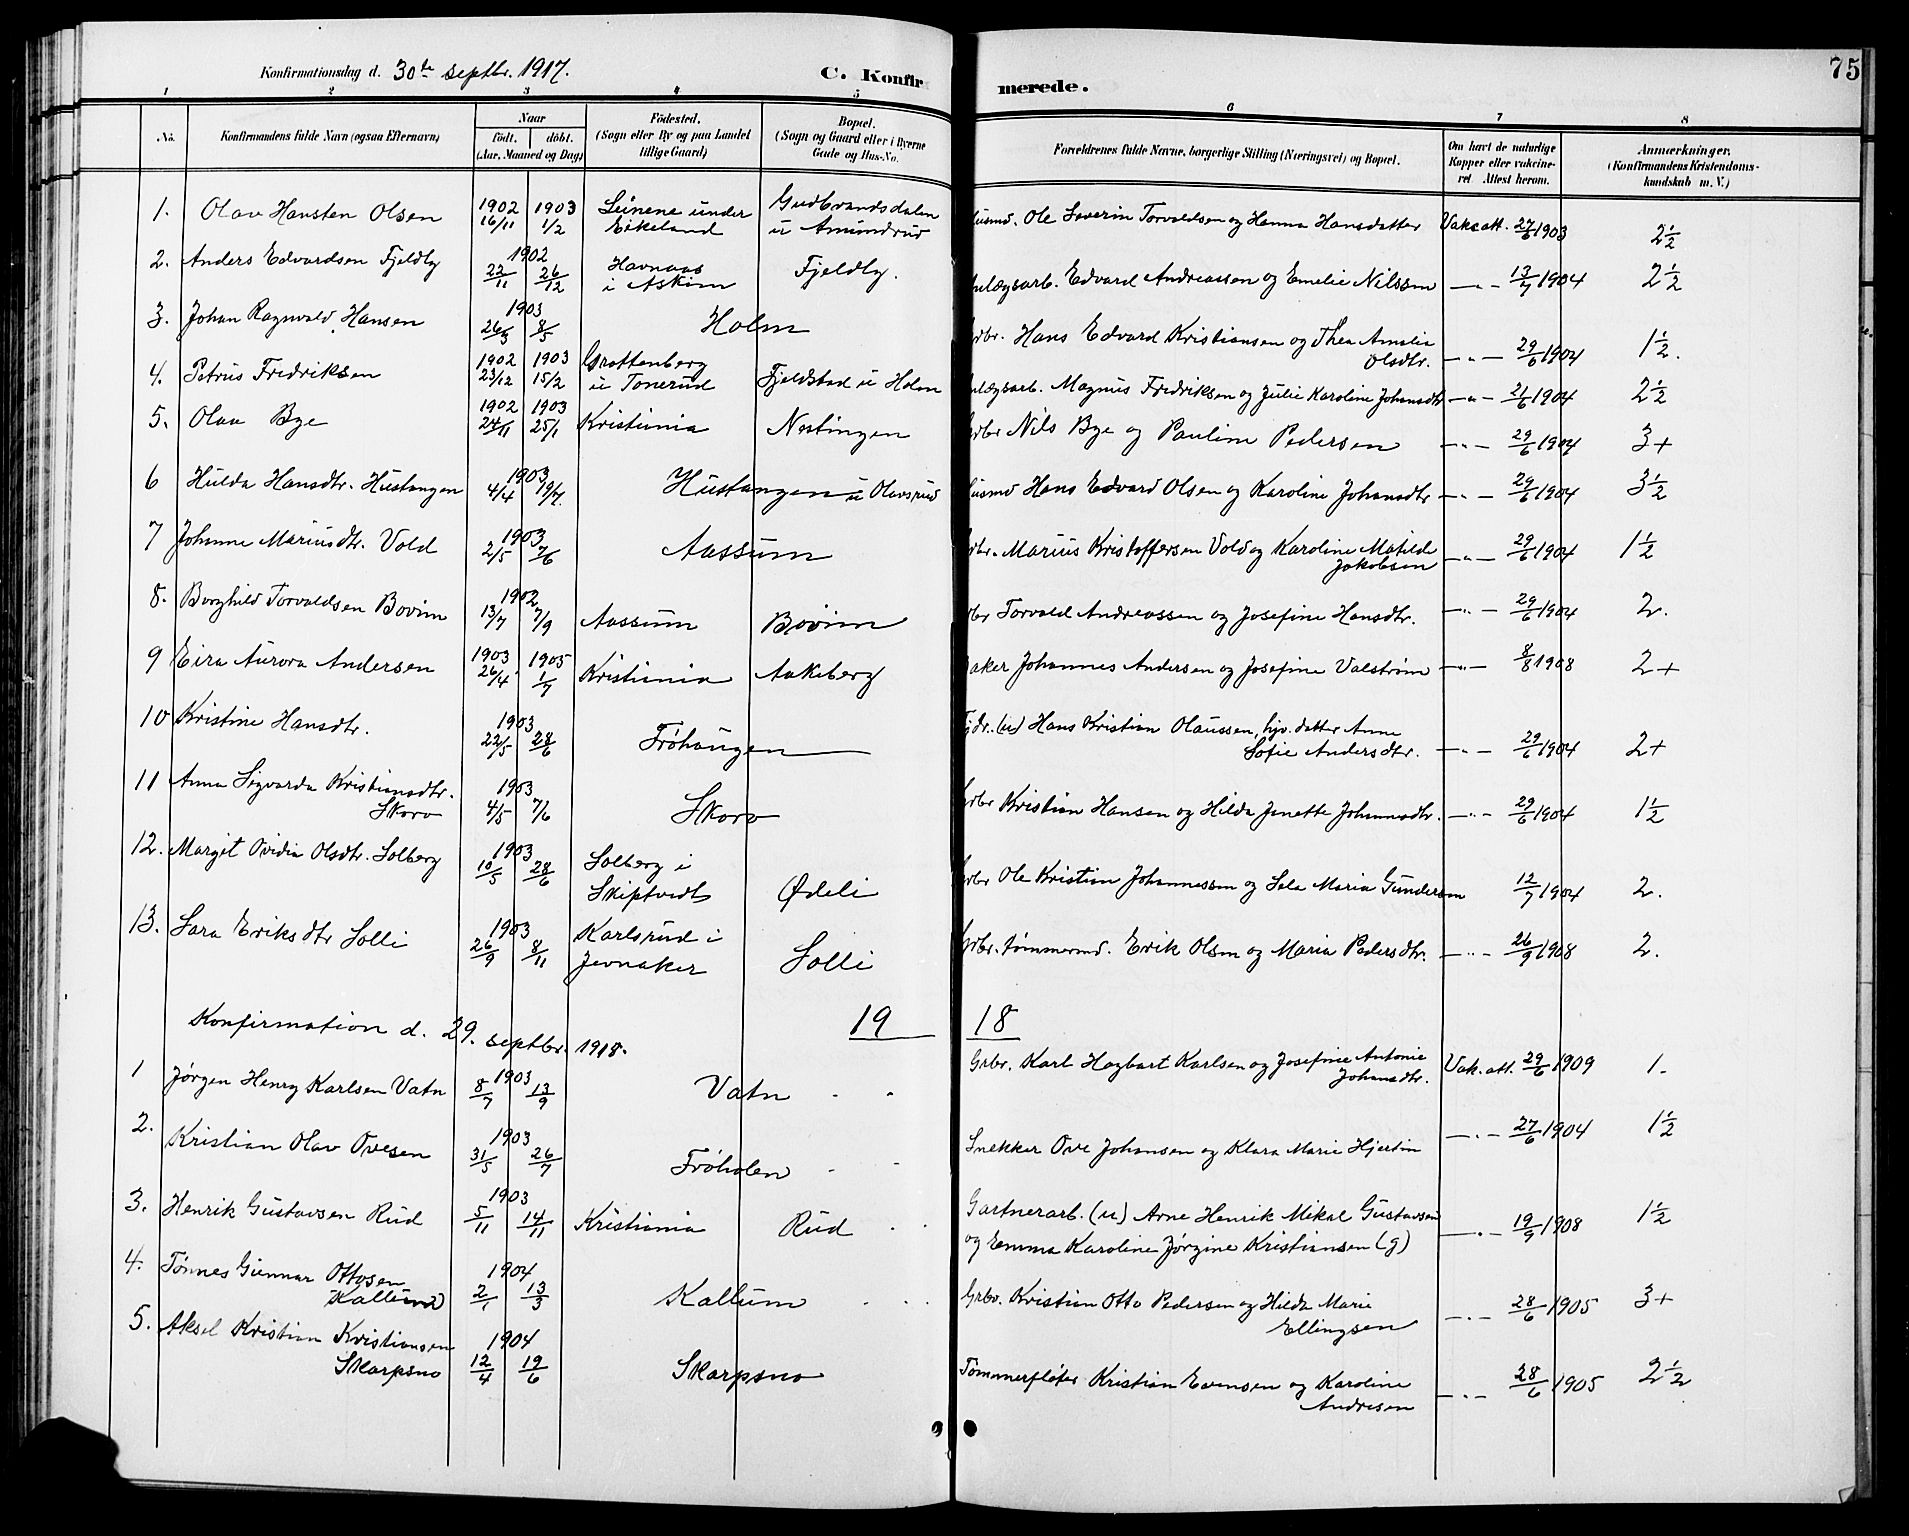 75
Konfirmationsdag d. 30te septbr. 1917. C. Konfirmerede.
1 2 3 4 5 6 7 8
No. Konfirmandens fulde Navn (ogsaa Efternavn) Naar født. døbt. (Aar, Maaned og Dag) Fødested. (Sogn eller By og paa Landet tillige Gaard) Bopæl. (Sogn og Gaard eller i Byerne Gade og Hus-No. Forældrenes fulde Navne, borgerlige Stilling (Næringsvei) og Bopæl. Om havt de naturlige Kopper eller vaccineret Attest herom. Anmærkninger. (Konfirmandens Kristendomskundskab m. V.)
1. Olav Hansten Olsen 1902 16/11 1903 1/2 Leinene under Eikeland Gudbrandsdalen u Amundrud Husmd. Ole Severin Torvaldsen og Hanna Hansdatter Vakcatt. 27/6 1903 2½
2. Anders Edvardsen Fjeldby 1902 22/11 26/12 Havnaas i Askim Fjeldby. Anlægsarb. Edvard Andreassen og Emelie Nilssen — " — 13/7 1904 2½
3. Johan Ragnvald Hansen 1903 26/3 8/5 Holm Grbr. Hans Edvard Kristiansen og Thea Amalia Olsdtr. — " — 29/6 1904 1½.
4. Petrus Fredriksen 1902 23/12 1903 15/2 Grottenberg u Tonerud Fjeldstad u Holm Anlægsarb. Magnus Fredriksen og Julie Karoline Johansdtr — " — 21/6 1904 2½
5. Olav Bye 1902 24/11 1903 25/1 Kristiania Nestingen Grbr Nils Bye og Pauline Pedersen — " — 29/6 1904 3+
6 Hulda Hansdtr. Hustangen 1903 4/4 19/7. Hustangen u Olavsrud Husmd Hans Edvard Olsen og Karoline Johansdtr — " — 29/6 1904 3½
7 Johanne Mariusdtr. Vold 1903 2/5 7/6 Aassum Grbr. Marius Kristoffersen Vold og Karoline Matilde Jakobsen — " — 29/6 1904 1½
8. Borghild Torvaldsen Bøvim 1902 13/7 7/9 Aassum Bøvim Grbr Torvald Andreassen og Josefine Hansdtr. — " — 29/6 1904 2.
9 Eira Aurora Andersen 1903 26/4 1905 1/7 Kristiania Aakeberg Baker Johannes Andersen og Josefine Valstrøm — " — 8/8 1908 2+
10 Kristine Hansdtr. 1903 22/5 28/6 Frøhaugen Gdr. (u) Hans Kristian Olaussen, hjv. datter Anne Sofie Andersdtr. — " — 29/6 1904 2+
11 Anna Sigvarda Kristiansdtr. Skoro 1903 4/5 7/6 Skoro Grbr Kristian Hansen og Hilda Janette Johannesdtr. — " — 29/6 1904 1½
12. Margit Ovidia Olsdtr. Solberg 1903 10/5 28/6 Solberg i Skiptvedt Ødeli Grbr Ole Kristian Johannessen og Sela Maria Gundersen 12/7 1904 2.
13. Sara Eriksdtr Solli 1903 26/9 8/11 Karlsrud i Jevnaker Solli Grbr. tømmermd. Erik Olsen og Maria Pedersdtr. — " — 26/9 1908 2.
Konfirmation d. 29. septbr. 1918. 19 18
1 Jørgen Henry Karlsen Vatn 1903 8/7 13/9 Vatn Grbr. Karl Hagbart Karlsen og Josefine Antonie Johansdtr. Vak. att. 29/6 1909 1.
2. Kristian Olav Ovesen 1903 31/5 26/7 Frøholen Snekker Ove Johansen og Klara Marie Hjertin — " — 27/6 1904 1½
3. Henrik Gustavsen Rud 1903 5/11 14/11 Kristiania Rud Gartnerarb. (u) Arne Henrik Mikal Gustavsen og Emma Karoline Jørgine Kristiansen (g) — " — 19/9 1908 1½
4. Tønnes Gunnar Ottosen Kallum 1904 2/1 13/3 Kallum Grbr. Kristian Otto Pedersen og Hilda Marie Ellingsen — " — 28/6 1905 3+
5. Aksel Kristian Kristiansen Skarpsno 1904 12/4 19/6 Skarpsno Tømmerfløter Kristian Evensen og Karoline Andresen — " — 28/6 1905 2½